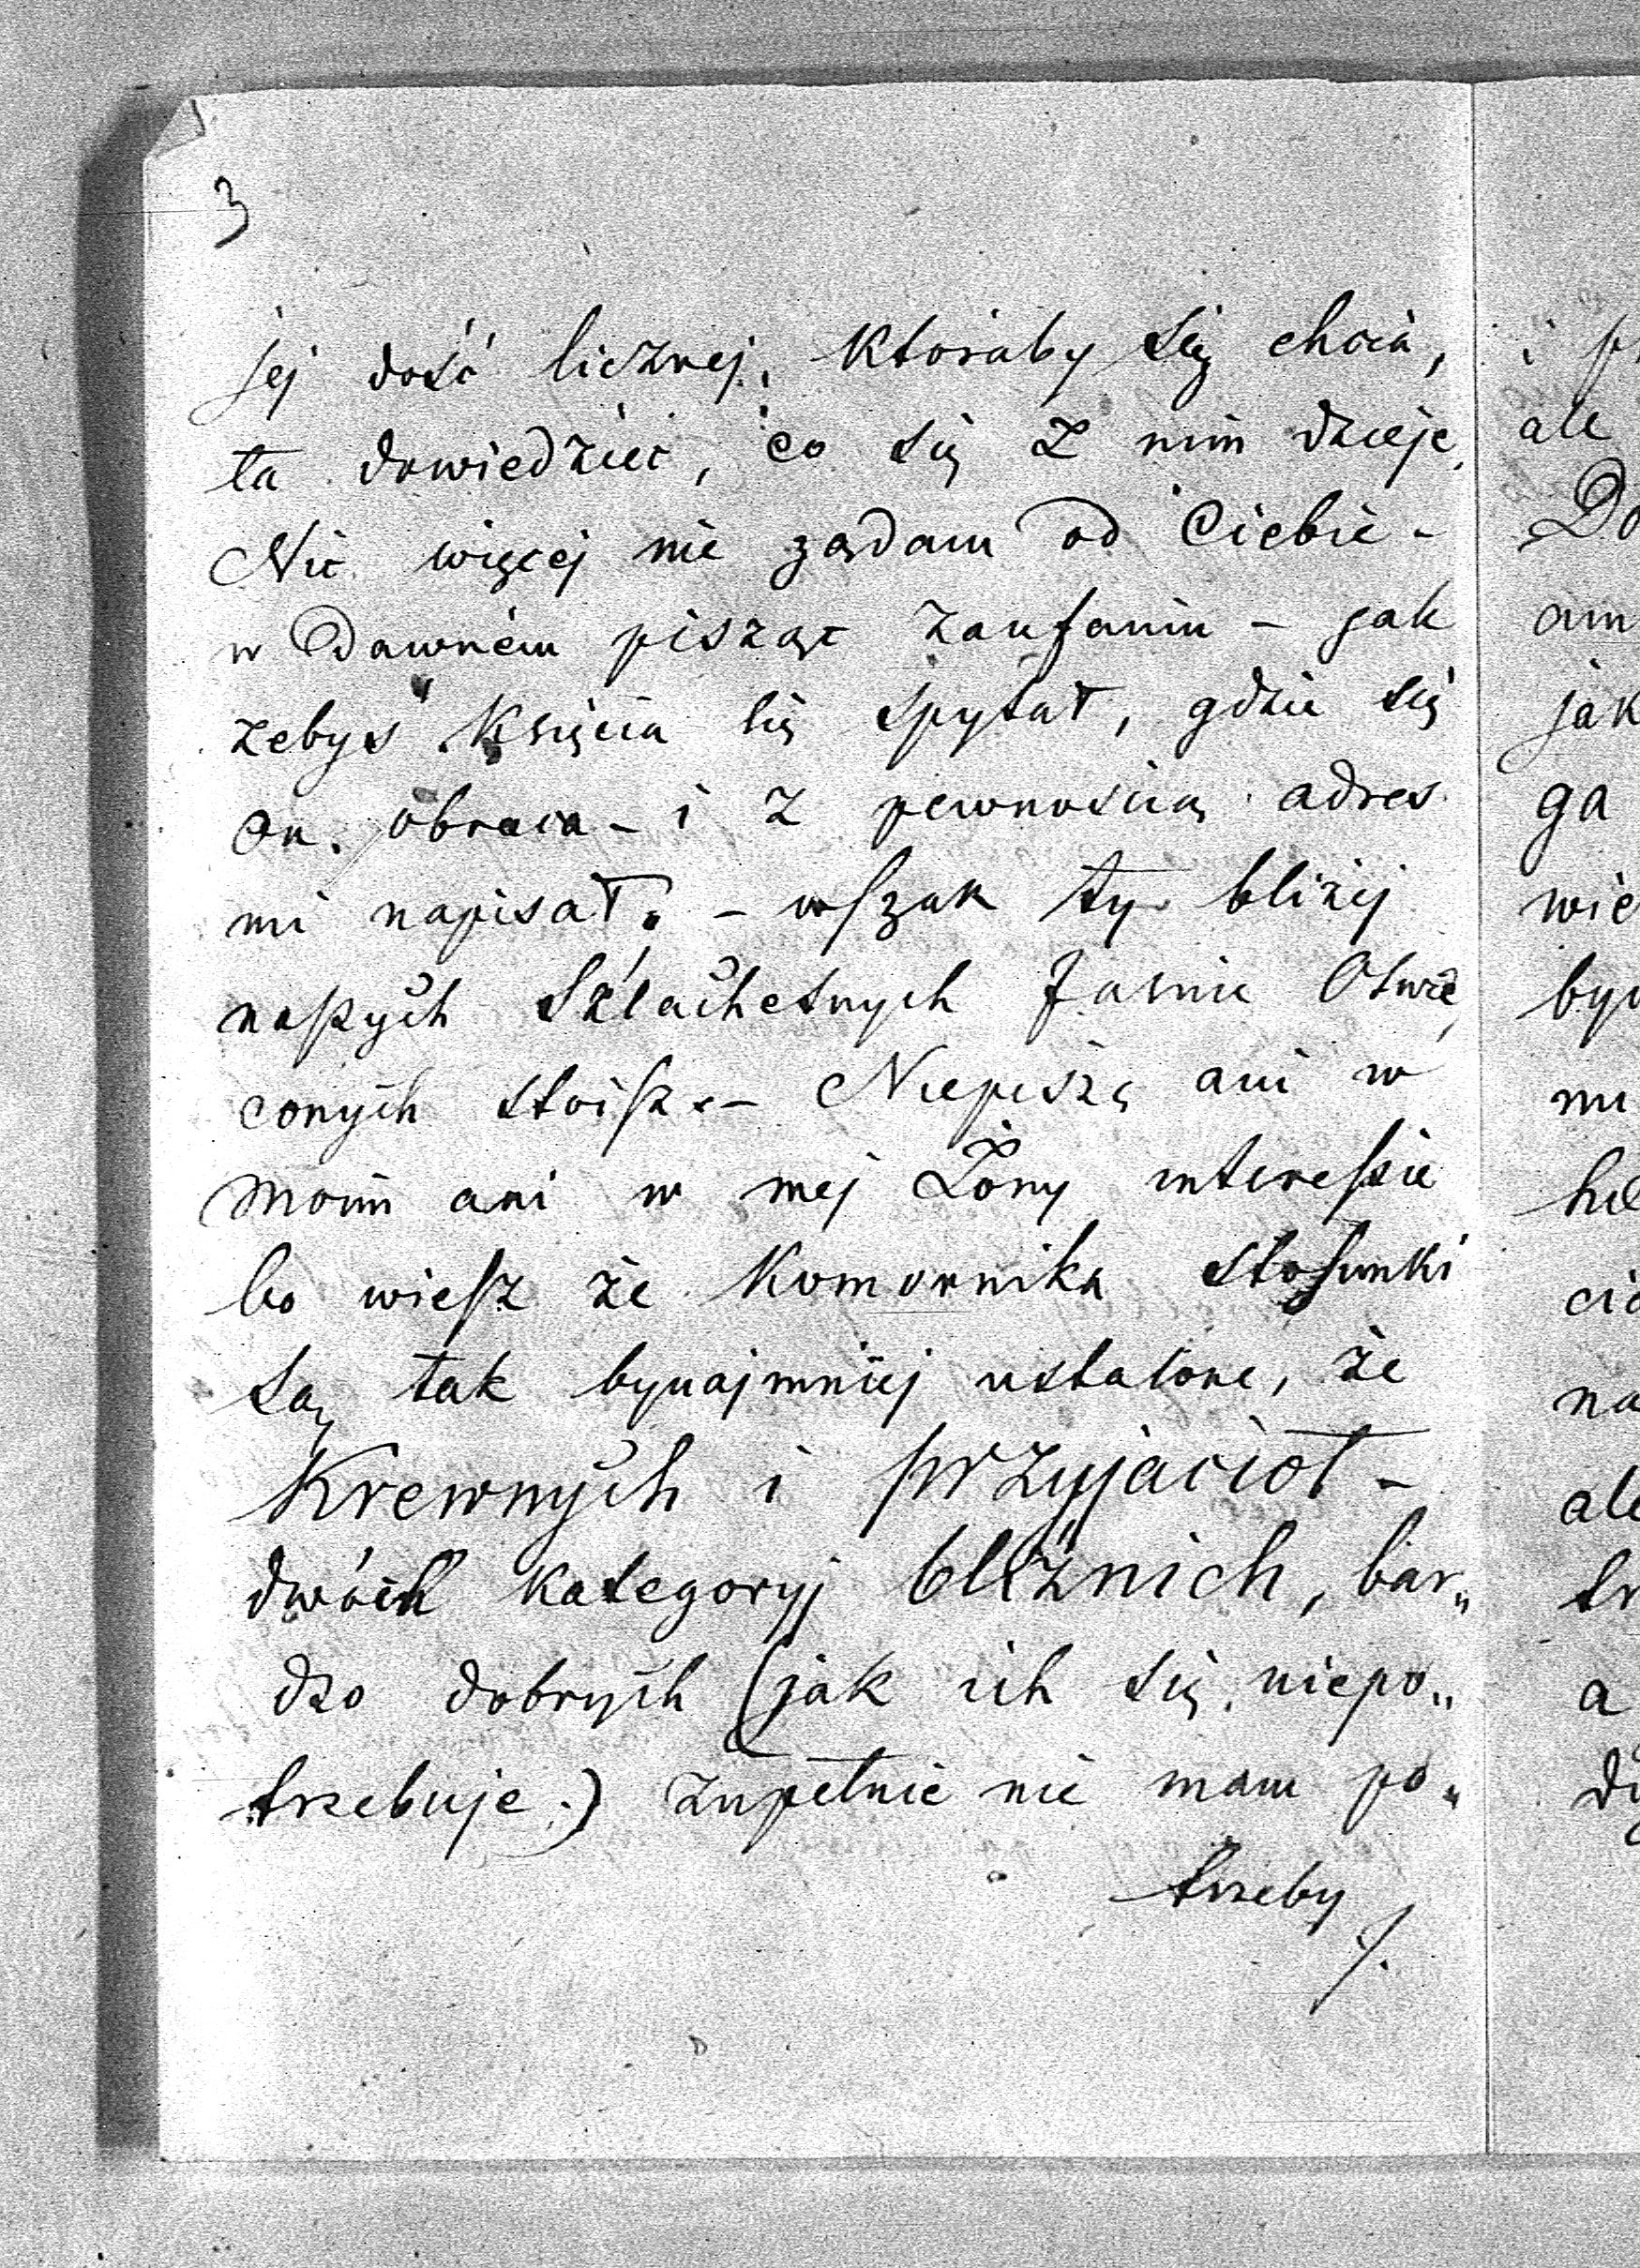 3
jej dość licznej, któraby się chcia,
ta dowiedzieć, co się z nim dzieje,
Nic więcej nie ządam od Ciebie -
w Dawném pisząc zaufaniu - jak
żebyś Księcia się spytał, gdzie się
on obraca - i z pewnością adres
mi napisał. - wszak ty bliżej
naszych Szlachetnych Jaśnie Oświe,
conych stoisz. - Niepiszę ani w
moim ani w mej Żony interesie
bo wiesz że Komornika stosunki
są tak bynajmniej ustalone, że
Krewnych i przyjaciół -
dwóch kategoryj bliźnich, bar„
dzo dobrych (jak ich się niepo„
trzebuje.) zupełnie nie mam po„
trzeby
i p
ale
Do
am
jak
ga
wie
byn
mi
na
ale
a